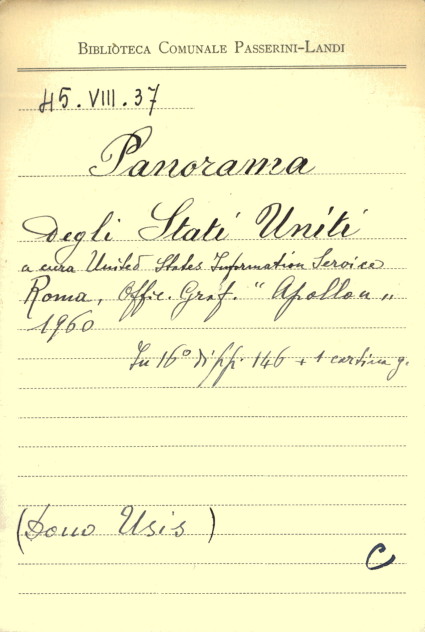 BIBLIOTECA COMUNALE PASSERINI-LANDI
45.VIII.37
Panorama
degli Stati Uniti
a cura United States Information Service
Roma, Offic. Graf. "Apollon"
1960
In 16° di pp. 146 + 1 cartina g.
(Dono Usis)
C